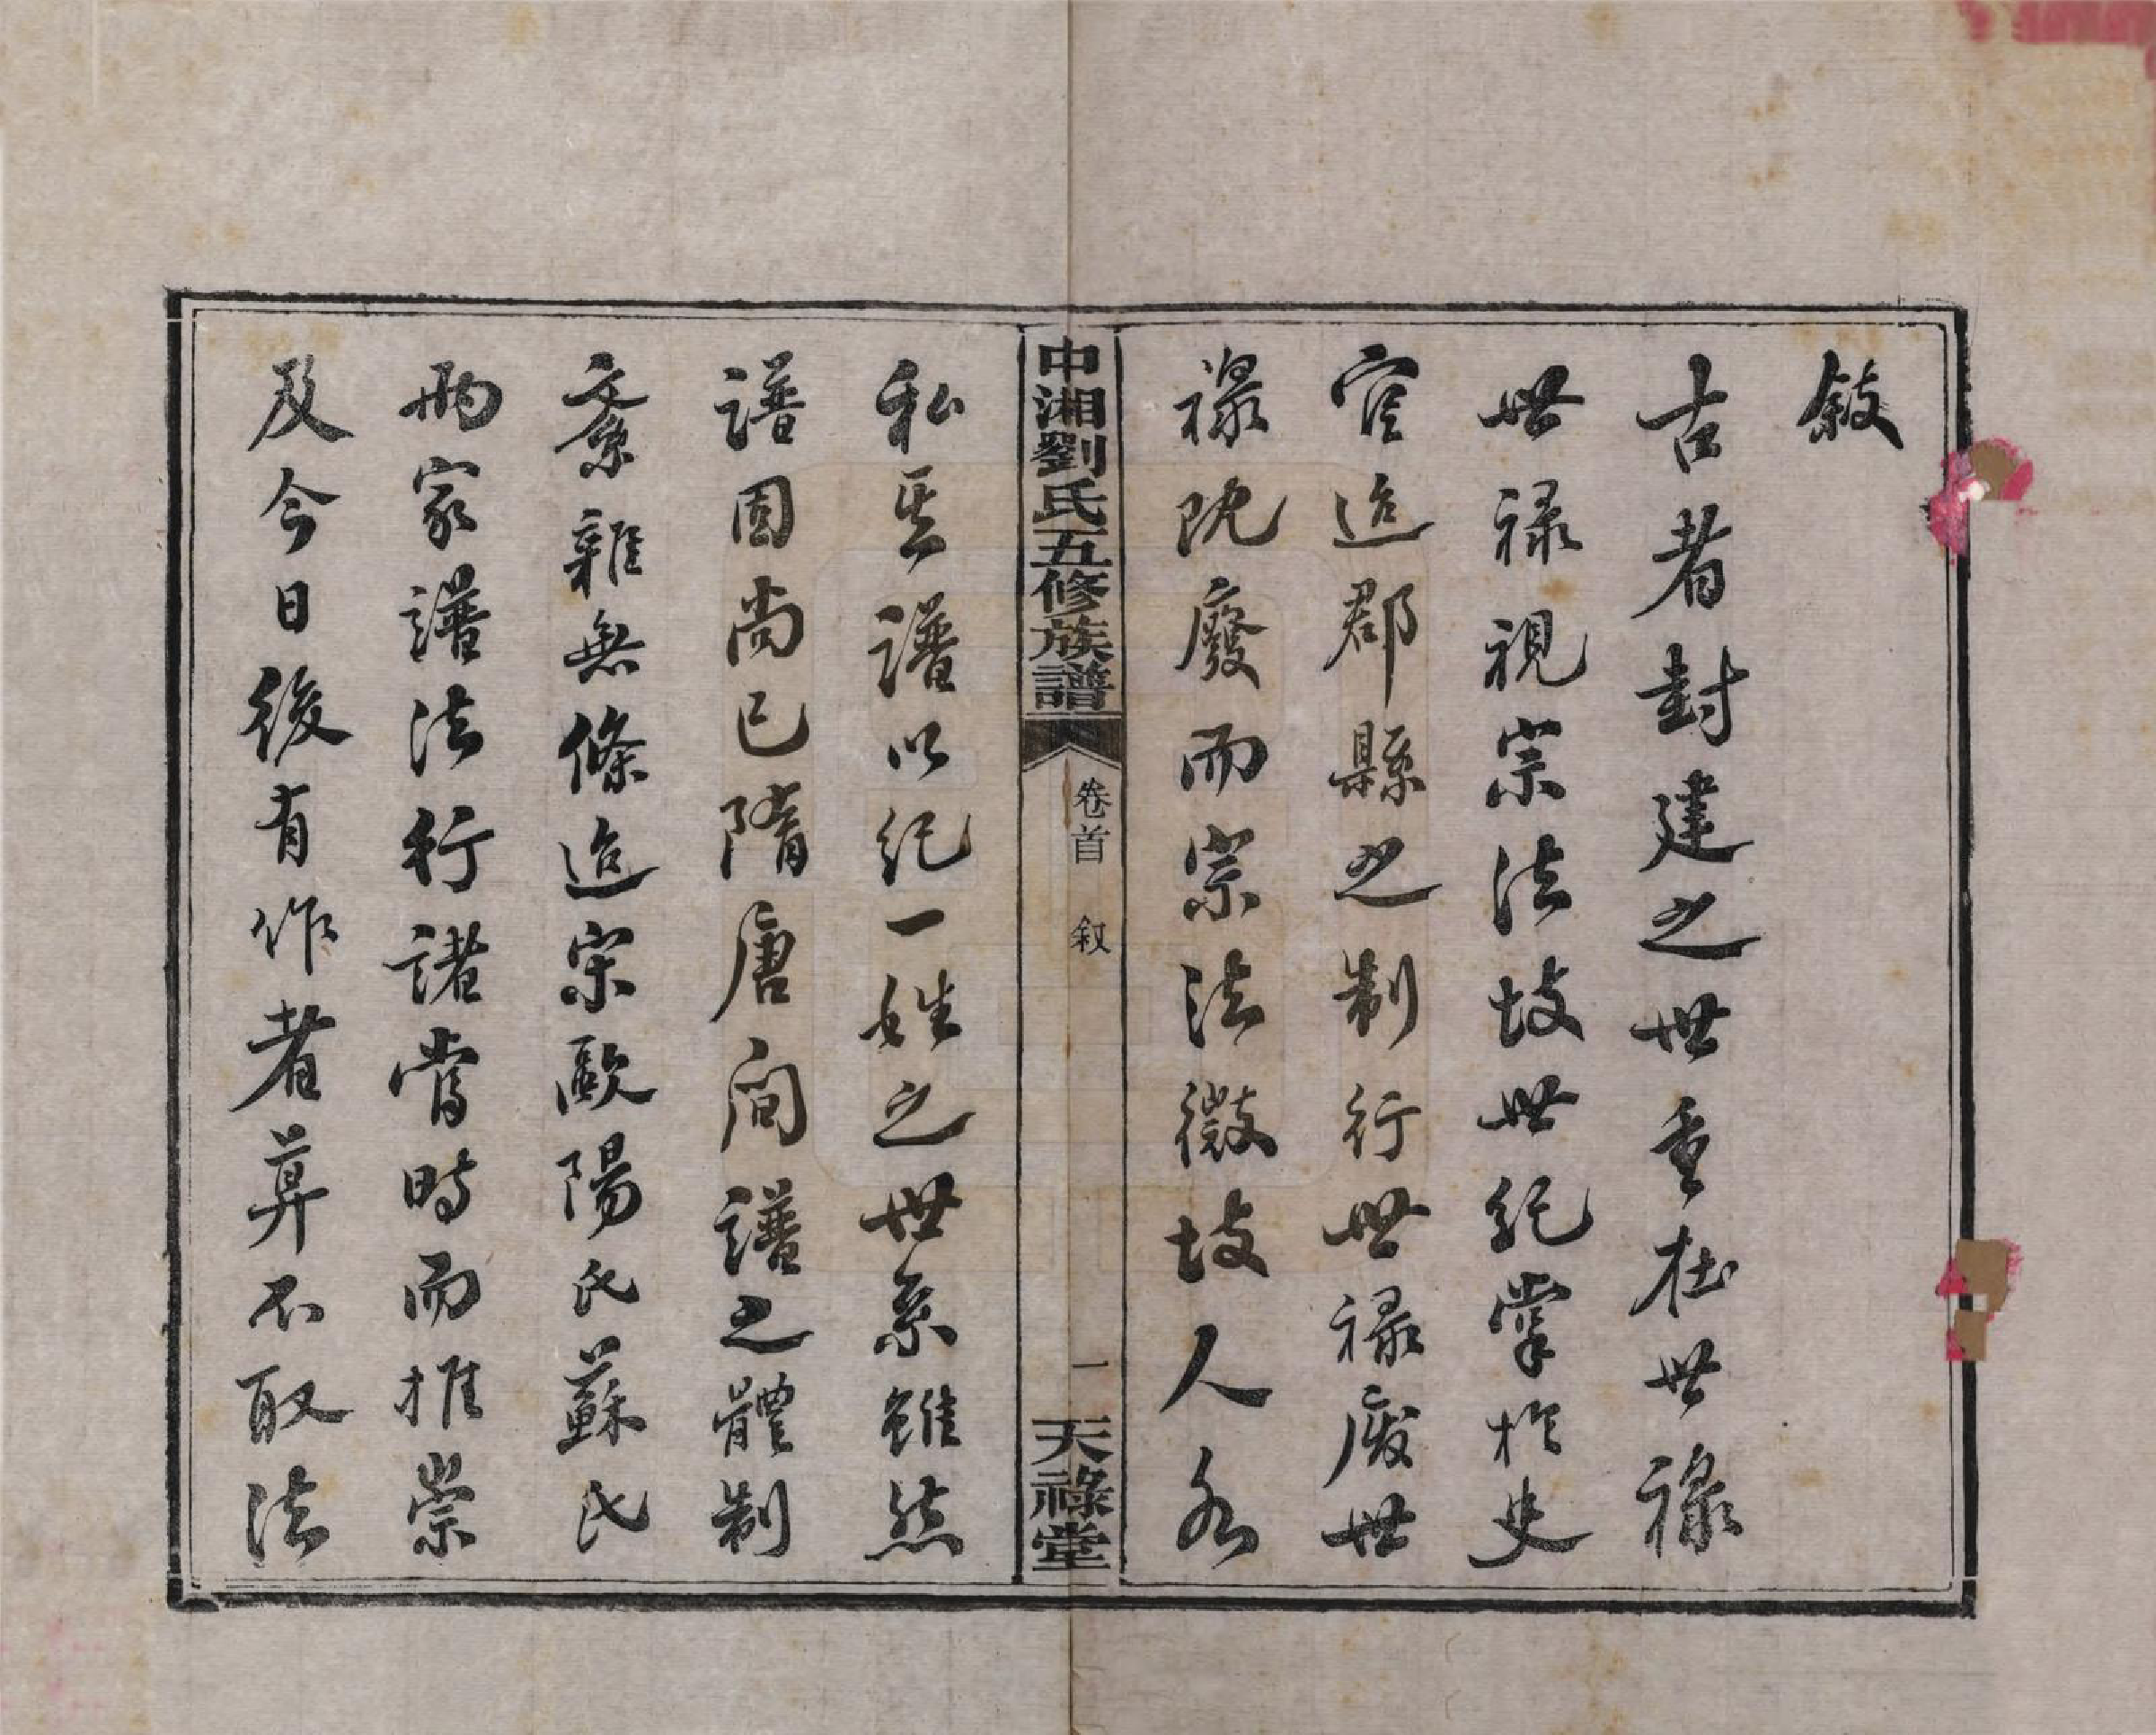 敘
古者封建之世重在世祿
世祿視宗法故世紀掌於史
官迨郡縣之制行世祿廢世
祿既廢而宗法微故人各
私其譜以紀一姓之世系雖然
譜固尚已隋唐間譜之體制
紊雜無條迨宋歐陽氏蘇氏
兩家譜法行諸當時而推崇
及今日後有作者算不取法
中湘劉氏五修族譜
卷首 叙
一
天祿堂